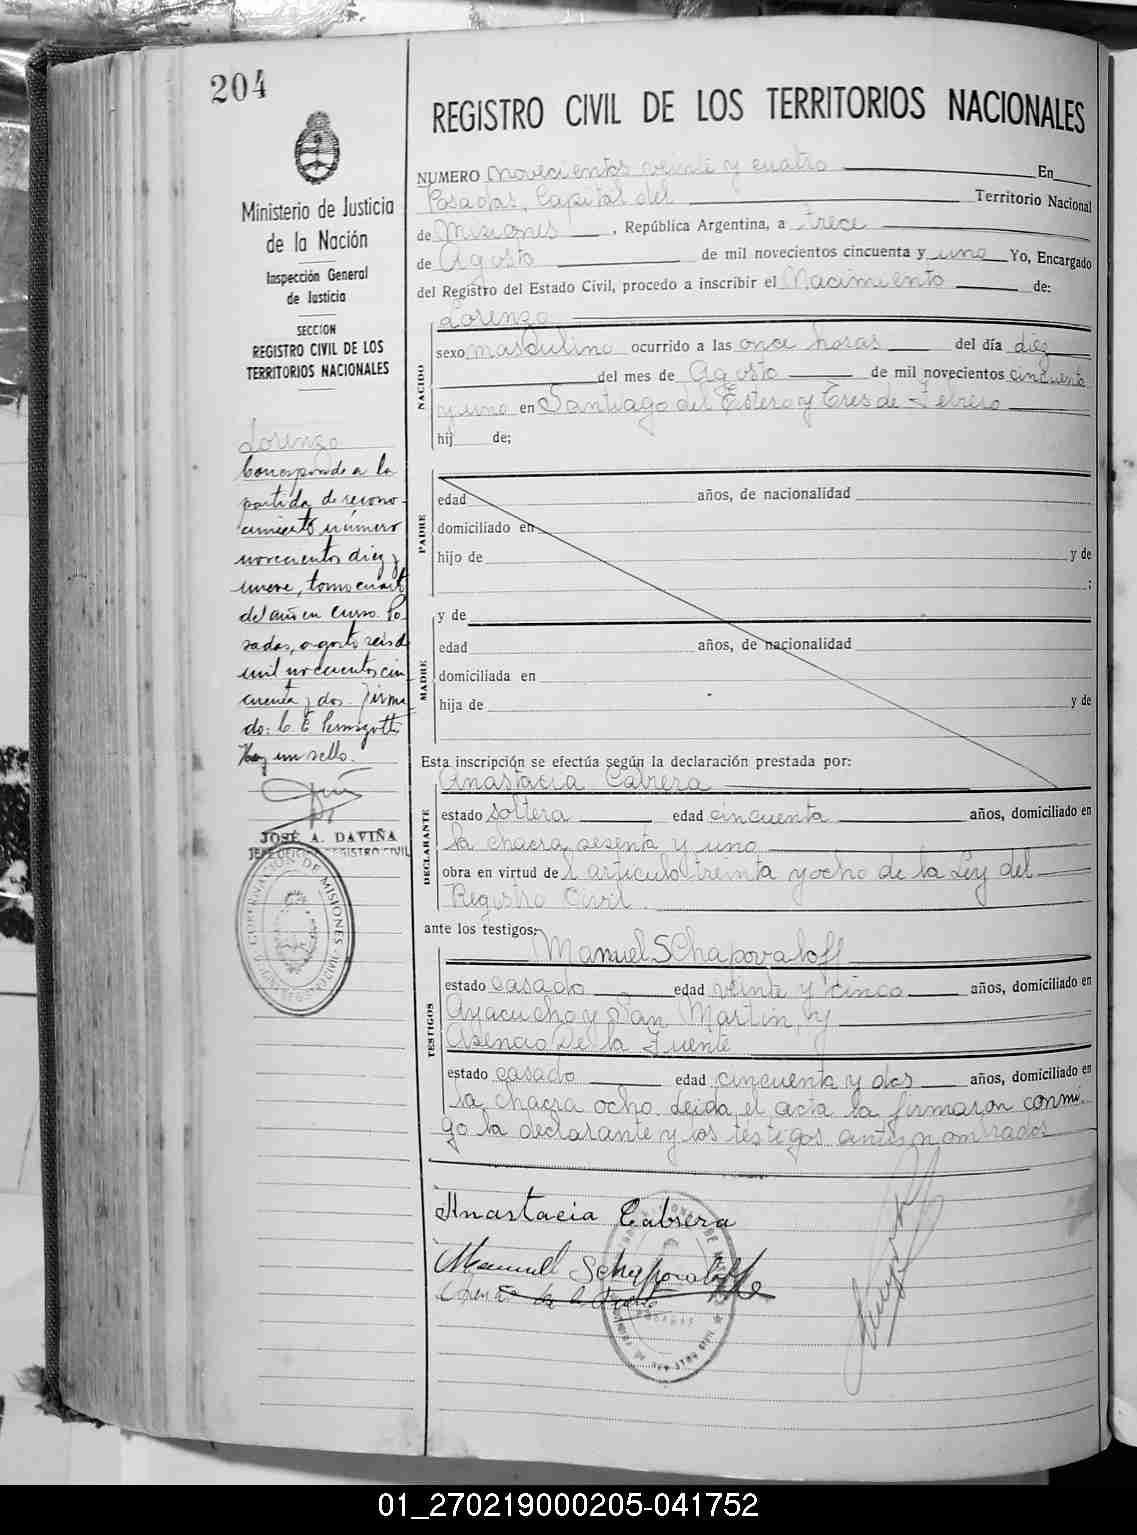 204
Ministerio de Justicia
de la Nación
Inspección General
de Justicia
SECCION
REGISTRO CIVIL DE LOS
TERRITORIOS NACIONALES
Lorenzo
Corresponde a la
partida de recono-
cimiento número
novecientos diez y
nueve, tomo cuarto
del año en curso. Po-
sadas, agosto seis de
mil novecientos cin
cuenta y dos. Firma
do: C. E.
Hay un sello.
JOSÉ A. DAVIÑA
REGISTRO CIVIL
GOBERNACION DE MISIONES
REGISTRO CIVIL DE LOS TERRITORIOS NACIONALES
NUMERO novecientos veinte y cuatro En
Posadas, Capital del Territorio Nacional
de Misiones , República Argentina, a trece
de Agosto de mil novecientos cincuenta y uno Yo, Encargado
del Registro del Estado Civil, procedo a inscribir el Nacimiento de:
NACIDO
Lorenzo
sexo masculino ocurrido a las once horas del día diez
del mes de Agosto de mil novecientos cincuenta
y uno en Santiago del Estero y Tres de Febrero
hij de;
PADRE
edad años, de nacionalidad
domiciliado en
hijo de y de
;
MADRE
y de
edad años, de nacionalidad
domiciliada en
hija de y de
Esta inscripción se efectúa según la declaración prestada por:
DECLARANTE
Anastacia Cabrera
estado soltera edad cincuenta años, domiciliado en
la chacra sesenta y uno
obra en virtud del artículo treinta y ocho de la Ley del
Registro Civil.
ante los testigos:
TESTIGOS
Manuel SChapovaloff
estado casado edad veinte y cinco años, domiciliado en
Ayacucho y San Martin, y
Asencio De la Fuente
estado casado edad cincuenta y dos años, domiciliado en
la chacra ocho. Leida el acta la firmaron conmi-
go la declarante y los testigos antes nombrados
Anastacia Cabrera
Manuel Schapovaloff
01_270219000205-041752